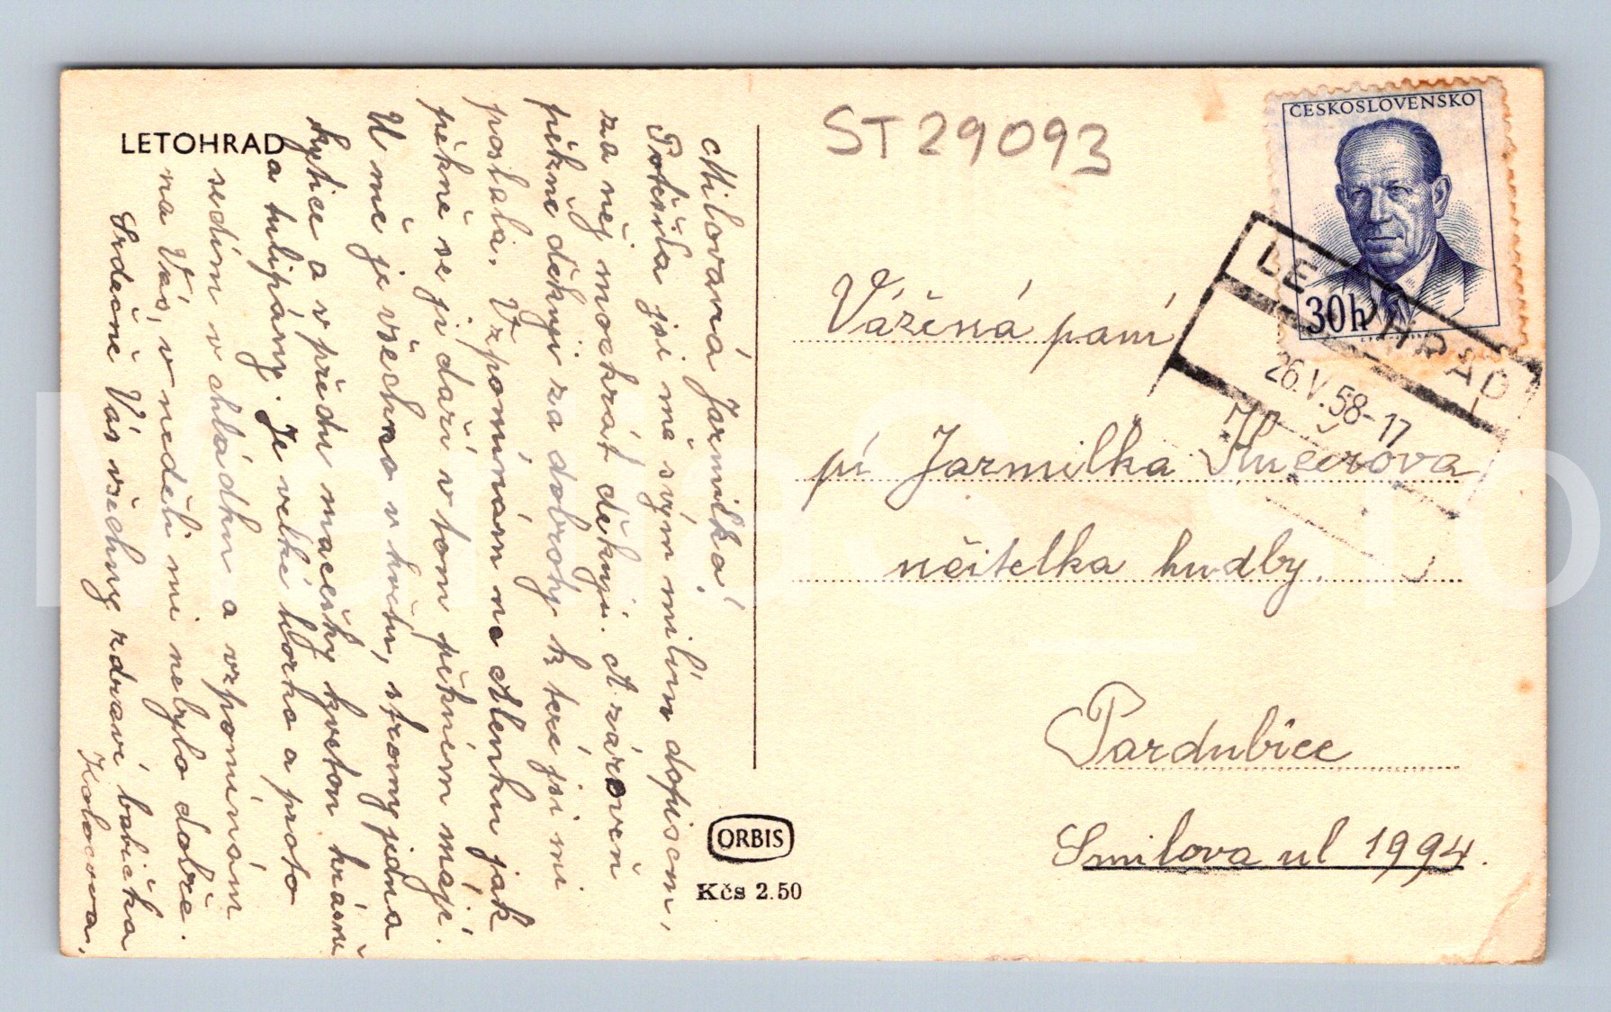 LETOHRAD
Milovaná Jarmilko!
Potěšila jsi mě svým milým dopisem,
za něj mockrát děkuji. A zároveň
pěkně děkuji za dobroty které jsi mi
poslala. Vzpomínám na Alenku jak
pěkně se jí daří v tom pěkném máji.
U mě je všechno v květu, stromy jedna
kytice a v předu macešky kvetou krásně
a tulipány. Je velké horko a proto
sedím v chládku a vzpomínám
na Vás, v neděli mi nebylo dobře.
Srdečně Vás všechny zdraví babička
ST29093
ČESKOSLOVENSKO
30h
LETOHRAD
26.V.58-17
Vážená paní
pí Jarmilka Kučerova
učitelka hudby.
Pardubice
Smilova ul 1994.
ORBIS
Kčs 2.50